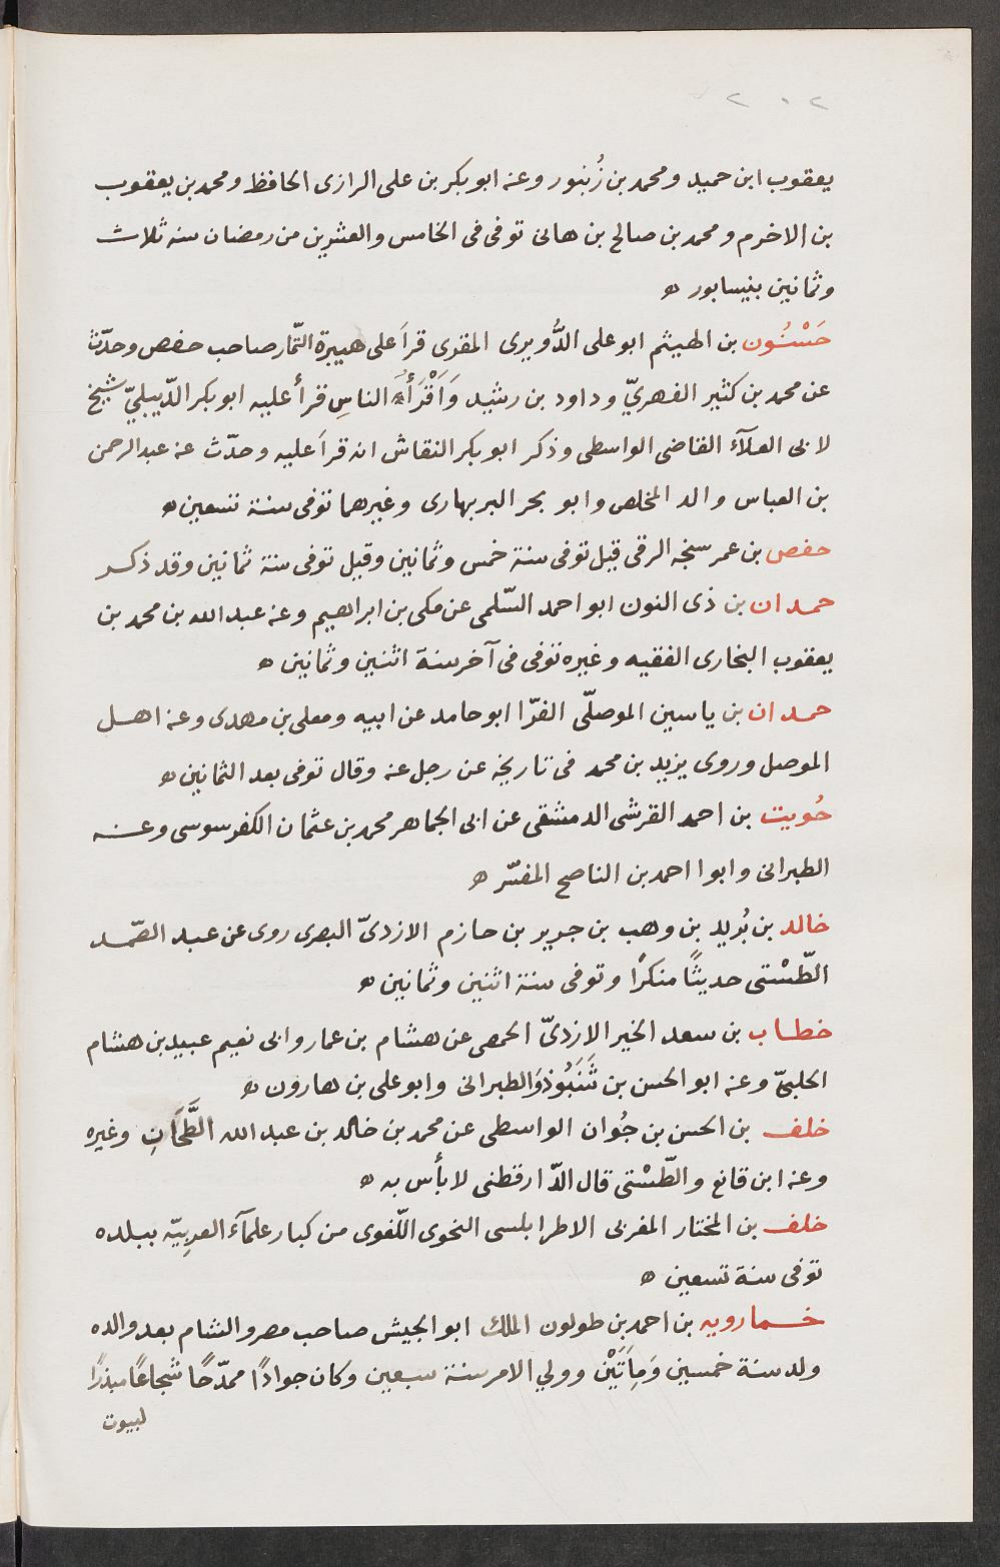 ٢٠٢
يعقوب ابن حميد ومحمد بن زُنبور وعنه ابو بكر بن على الرازى الحافظ ومحمد بن يعقوب
بن الاخرم ومحمد بن صالح بن هانى توفى فى الخامس والعشرين من رمضان سنه ثلاث
وثمانين بنيسابور ه
حَسْنُون بن الهيثم ابو على الدُّويرى المقرى قرأ على هبيرة التّمار صاحب حفص وحدّث
عن محمد بن كثير الفهريّ وداود بن رشيد وَاَقْرَأَ الناسِ قرأ عليه ابو بكر الدّيبليّ شيخ
لابى العلآء القاضى الواسطى وذكر ابو بكر النقاش انه قرأ عليه وحدّث عنه عبد الرحمن
بن العباس والد المخلص وابو بحر البربهارى وغيرهما توفى سنة تسعين ه
حفص بن عمر سنجه الرقى قيل توفى سنة خمس وثمانين وقيل توفى سنة ثمانين وقد ذكر
حمدان بن ذى النون ابو احمد السّلمى عن مكى بن ابراهيم وعنه عبد الله بن محمد بن
يعقوب البخارى الفقيه وغيره توفى فى آخر سنة اثنين وثمانين ه
حمدان بن ياسين الموصلّى الفرّا ابو حامد عن ابيه ومعلى بن مهدى وعنه اهل
الموصل وروى يزيد بن محمد فى تاريخه عن رجل عنه وقال توفى بعد الثمانين ه
حُويت بن احمد القرشى الدمشقى عن ابى الجماهر محمد بن عثمان الكفرسوسى وعنه
الطبرانى وابوا احمد بن الناصح المفسّر ه
خالد بن يُريد بن وهب بن جرير بن حازم الازدىّ البصرى روى عن عبد الصّمد
الطّسْتى حديثًا منكرًا وتوفى سنة اثنين وثمانين ه
خطاب بن سعد الخير الازدىّ الحمصى عن هشام بن عمار وابى نعيم عبيد بن هشام
الحلبىّ وعنه ابو الحسن بن شَنَبُوذوَالطبرانى وابو على بن هارون ه
خلف بن الحسن بن جُوان الواسطى عن محمد بن خالد بن عبد الله الطَّحَانِ وغيره
وعنه ابن قانع والطّسْتى قال الدّارقطنى لا بأس به ه
خلف بن المختار المغربى الاطرابلسى النحوى اللّغوى من كبار علمآء العربيّه ببلده
توفى سنة تسعين ه
خمارويه بن احمد بن طولون الملك ابو الجيش صاحب مصر والشام بعد والده
ولد سنة خمسين وَمِاَتَيْن وولي الامر سنة سبعين وكان جوادًا ممدّحًا شجاعًا مبذرًا
لبيوت